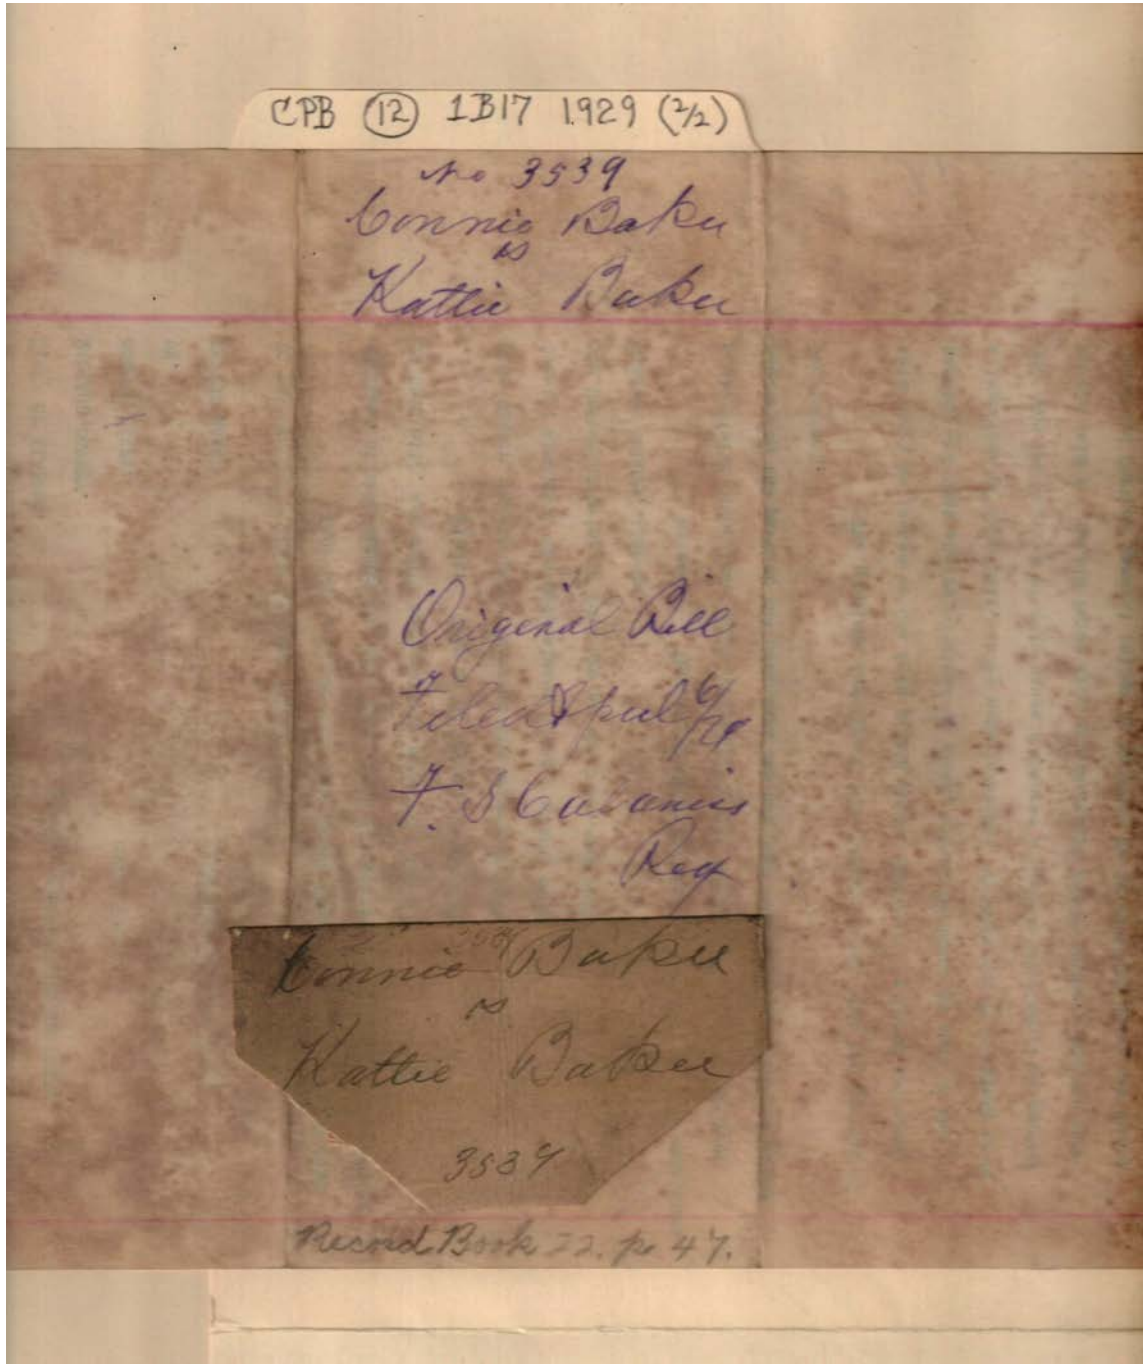 CPB (12) 1B17 1929 (2/2)
No 3539
Connie Baker
vs
Kattie Baker
Original Bill
Filed April 6/29
F. S.
Reg
Connie Baker
vs
Kattie Baker
3539
Record Book 22. p. 47.